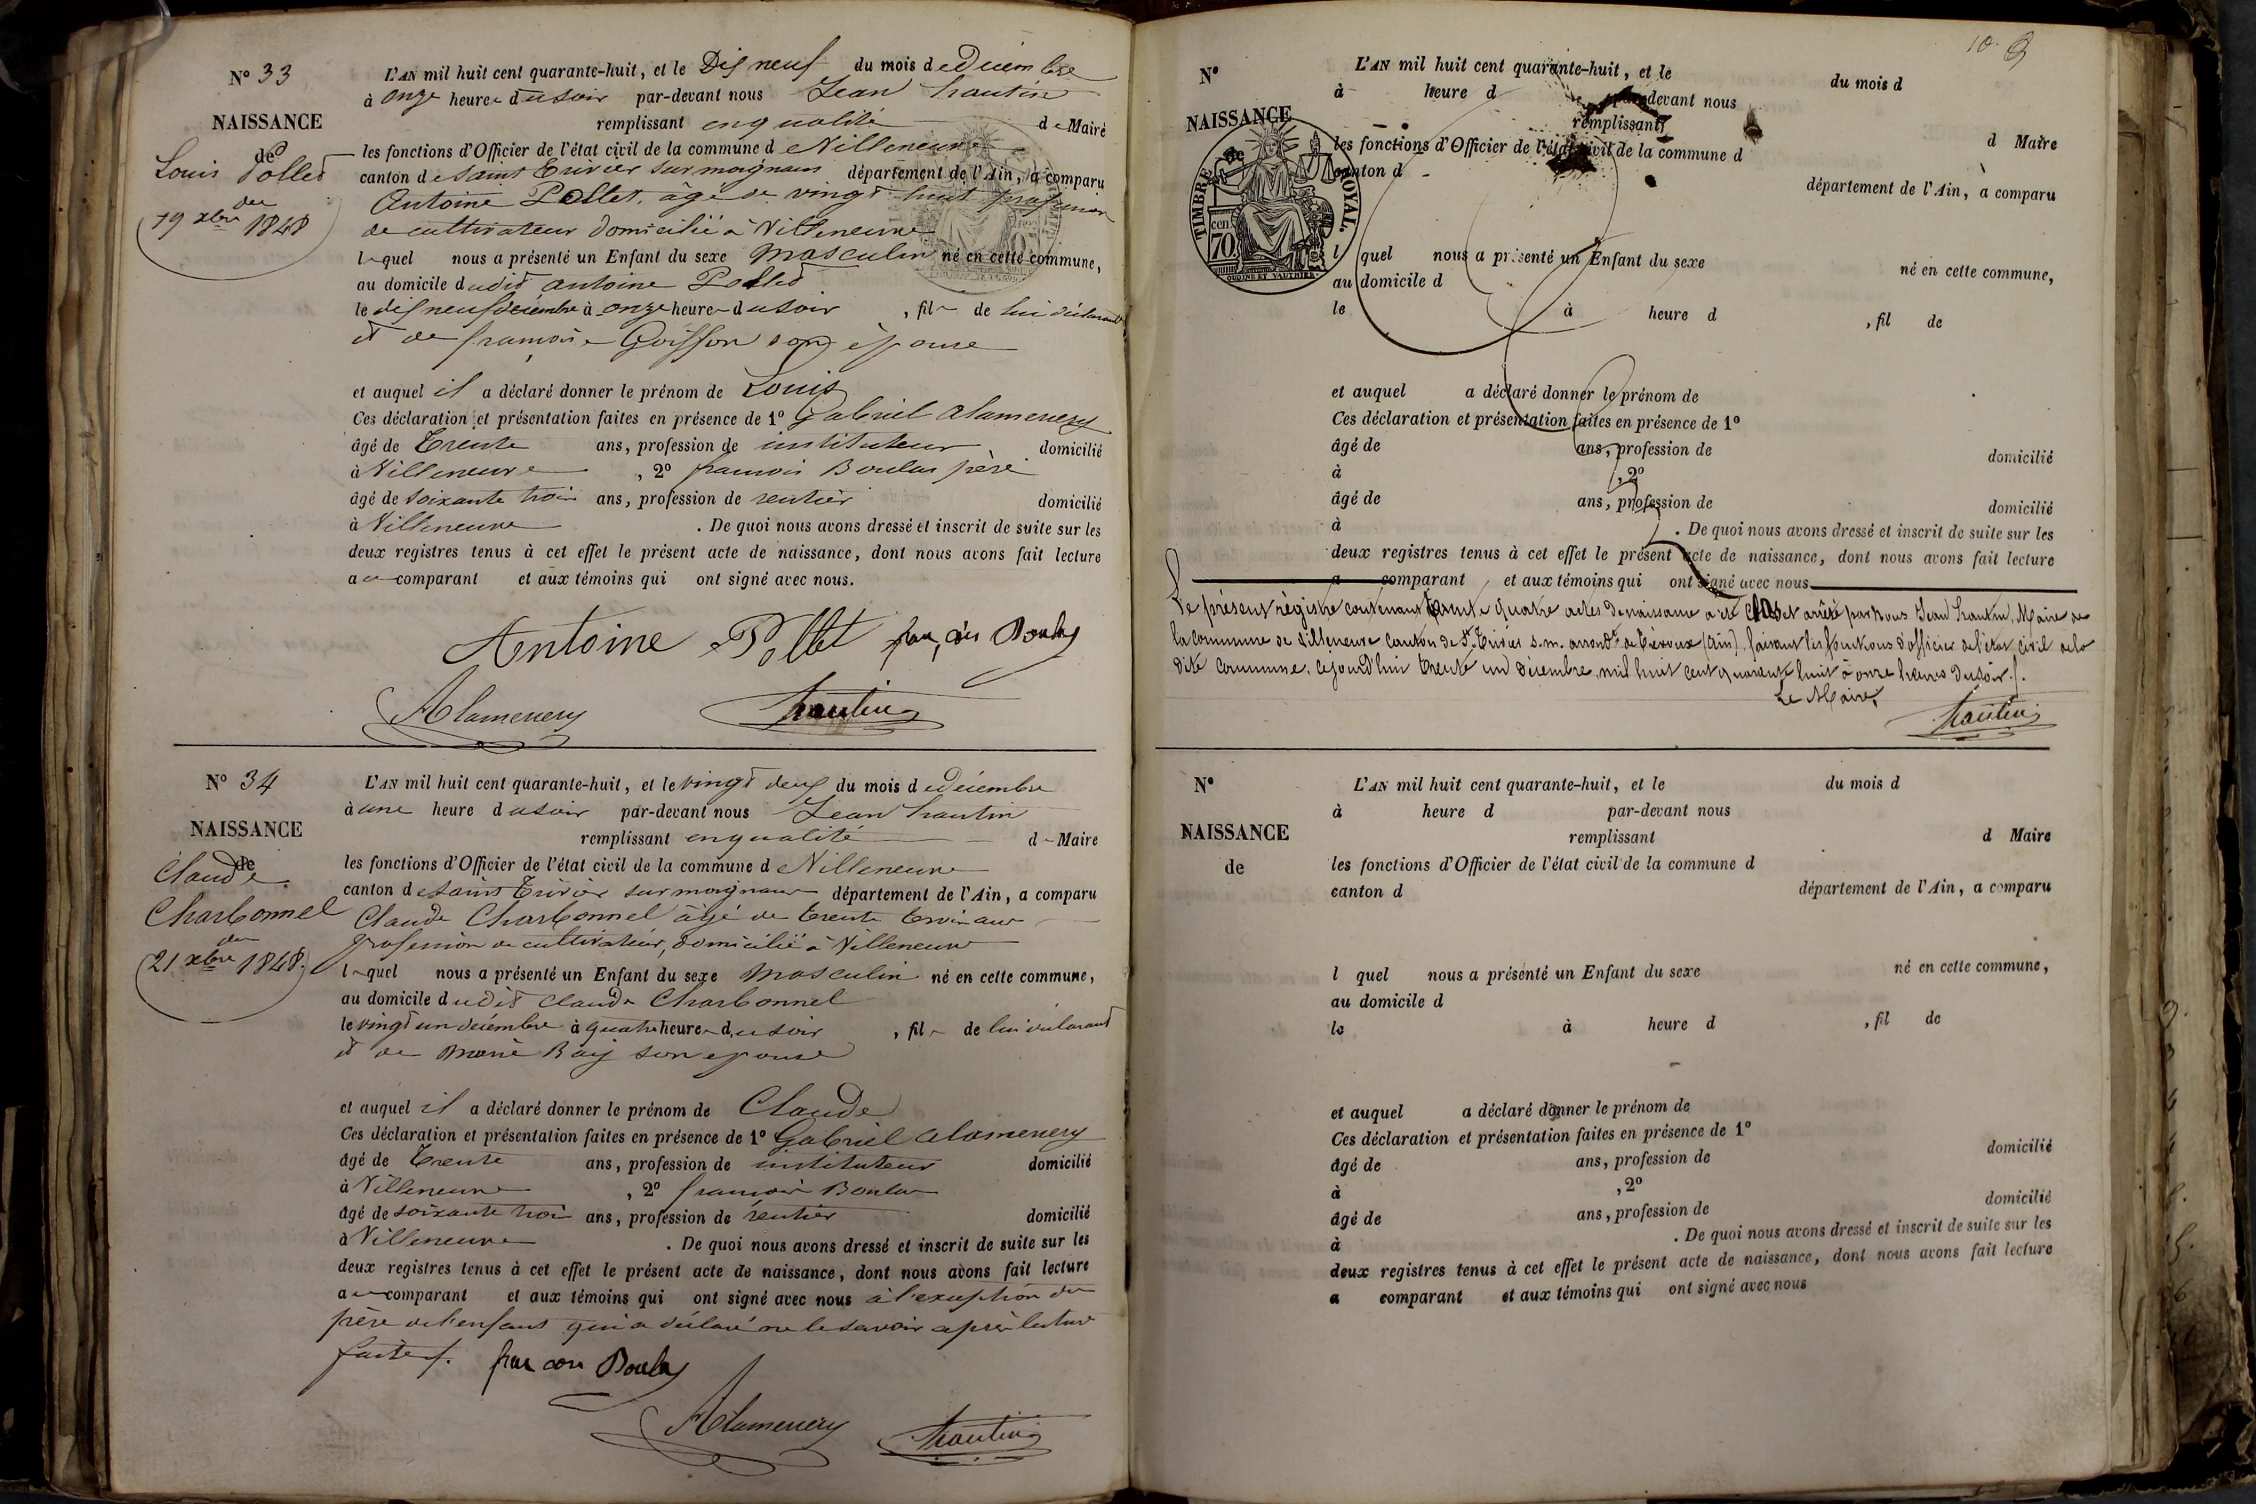 N° 33
NAISSANCE
de
Louis Pollet
19 xbre 1848
L'AN mil huit cent quarante-huit, et le Dix neuf du mois de Décembre
à onze heure du soir par-devant nous Jean
remplissant en qualité de Maire
les fonctions d'Officier de l'état civil de la commune de Villeneuve
canton de Saint Trivier sur moignans département de l'Ain, a comparu
Antoine Pollet, âgé de vingt huit profession
de cultivateur domicilié à Villeneuve
lequel nous a présenté un Enfant du sexe Masculin né en cette commune,
au domicile dudit antoine Pollet
le dix neuf décembre à onze heure du soir , fils de lui déclarant
et de françoise Goiffon son épouse
et auquel il a déclaré donner le prénom de Louis
Ces déclaration et présentation faites en présence de 1° Gabriel Alamenery
âgé de Trente ans, profession de instituteur domicilié
à Villeneuve , 2° françois Boulas père
âgé de soixante trois ans, profession de rentier domicilié
à Villeneuve . De quoi nous avons dressé et inscrit de suite sur les
deux registres tenus à cet effet le présent acte de naissance, dont nous avons fait lecture
au comparant et aux témoins qui ont signé avec nous.
Antoine Pollet françois Boulas
Alamenery
N° 34
NAISSANCE
de
Claude
Charbonnel
21 xbre 1848.
L'AN mil huit cent quarante-huit, et le vingt deux du mois de décembre
à une heure du soir par-devant nous Jean
remplissant en qualité de Maire
les fonctions d'Officier de l'état civil de la commune de Villeneuve
canton de saint Trivier sur moignans département de l'Ain, a comparu
Claude Charbonnel âgé de trente trois ans
profession de cultivateur, domicilié à Villeneuve
lequel nous a présenté un Enfant du sexe Masculin né en cette commune,
au domicile dudit claude Charbonnel
le vingt un décembre à quatre heure du soir , fils de lui déclarant
et de marie Baij son epouse
et auquel il a déclaré donner le prénom de Claude
Ces déclaration et présentation faites en présence de 1° Gabriel Alamenery
âgé de Trente ans, profession de instituteur domicilié
à Villeneuve , 2° françois Boulas
âgé de soixante trois ans, profession de rentier domicilié
à Villeneuve . De quoi nous avons dressé et inscrit de suite sur les
deux registres tenus à cet effet le présent acte de naissance, dont nous avons fait lecture
au comparant et aux témoins qui ont signé avec nous à l'exception du
père de l'enfant qui a déclaré ne le savoir après lecture
faite.
françois Boulas
Alamenery
10.
N°
NAISSANCE
de
TIMBRE ROYAL.
70
L'AN mil huit cent quarante-huit, et le du mois d
à heure d par-devant nous
remplissant d Maire
les fonctions d'Officier de l'état civil de la commune d
canton d département de l'Ain, a comparu
l quel nous a présenté un Enfant du sexe né en cette commune,
au domicile d
le à heure d , fil de
et auquel a déclaré donner le prénom de
Ces déclaration et présentation faites en présence de 1°
âgé de ans, profession de domicilié
à , 2°
âgé de ans, profession de domicilié
à . De quoi nous avons dressé et inscrit de suite sur les
deux registres tenus à cet effet le présent acte de naissance, dont nous avons fait lecture
a comparant et aux témoins qui ont signé avec nous
Le présent régistre contenant trente quatre actes de naissance a été clos et arrêté par nous Jean Maire de
la commune de Villeneuve canton de St Trivier s.m. arrondt de Trévoux (Ain), faisant les fonctions d'officier de l'état civil de la
dite commune, cejourd'hui trente un décembre mil huit cent quarante huit à onze heures du soir.
Le Maire,
N°
NAISSANCE
de
L'AN mil huit cent quarante-huit, et le du mois d
à heure d par-devant nous
remplissant d Maire
les fonctions d'Officier de l'état civil de la commune d
canton d département de l'Ain, a comparu
l quel nous a présenté un Enfant du sexe né en cette commune,
au domicile d
le à heure d , fil de
et auquel a déclaré donner le prénom de
Ces déclaration et présentation faites en présence de 1°
âgé de ans, profession de domicilié
à , 2°
âgé de ans, profession de domicilié
à . De quoi nous avons dressé et inscrit de suite sur les
deux registres tenus à cet effet le présent acte de naissance, dont nous avons fait lecture
a comparant et aux témoins qui ont signé avec nous